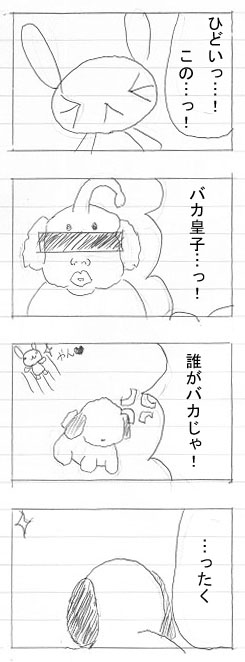 ひどいっ…！
この…っ！
バカ皇子…っ！
やん♥
誰がバカじゃ！
…ったく